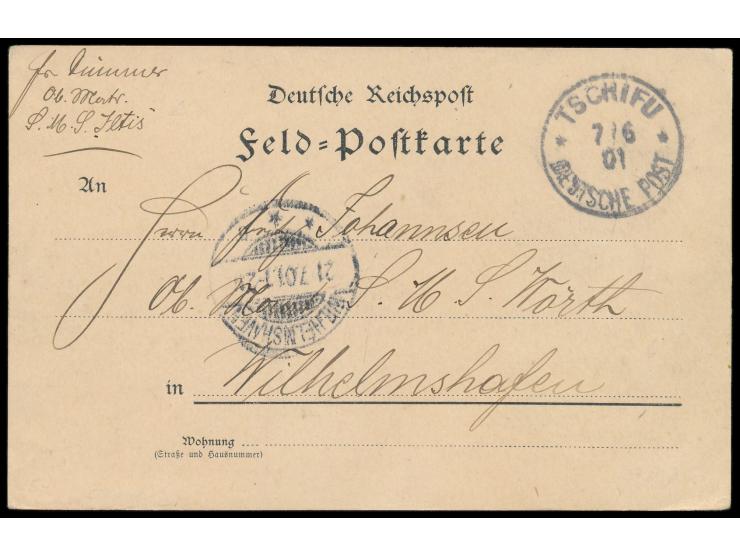 fr Dümmer
Ob. Matr.
S. M. S. Iltis
Deutsche Reichspost
Feld=Postkarte
* TSCHIFU *
7/6
01
DEUTSCHE POST
An
Herrn Johannsen
21.7.01.1-2
WILHELMSHAVEN
Ob. S. M. S. Wörth
in Wilhelmshafen
Wohnung
(Straße und Hausnummer)